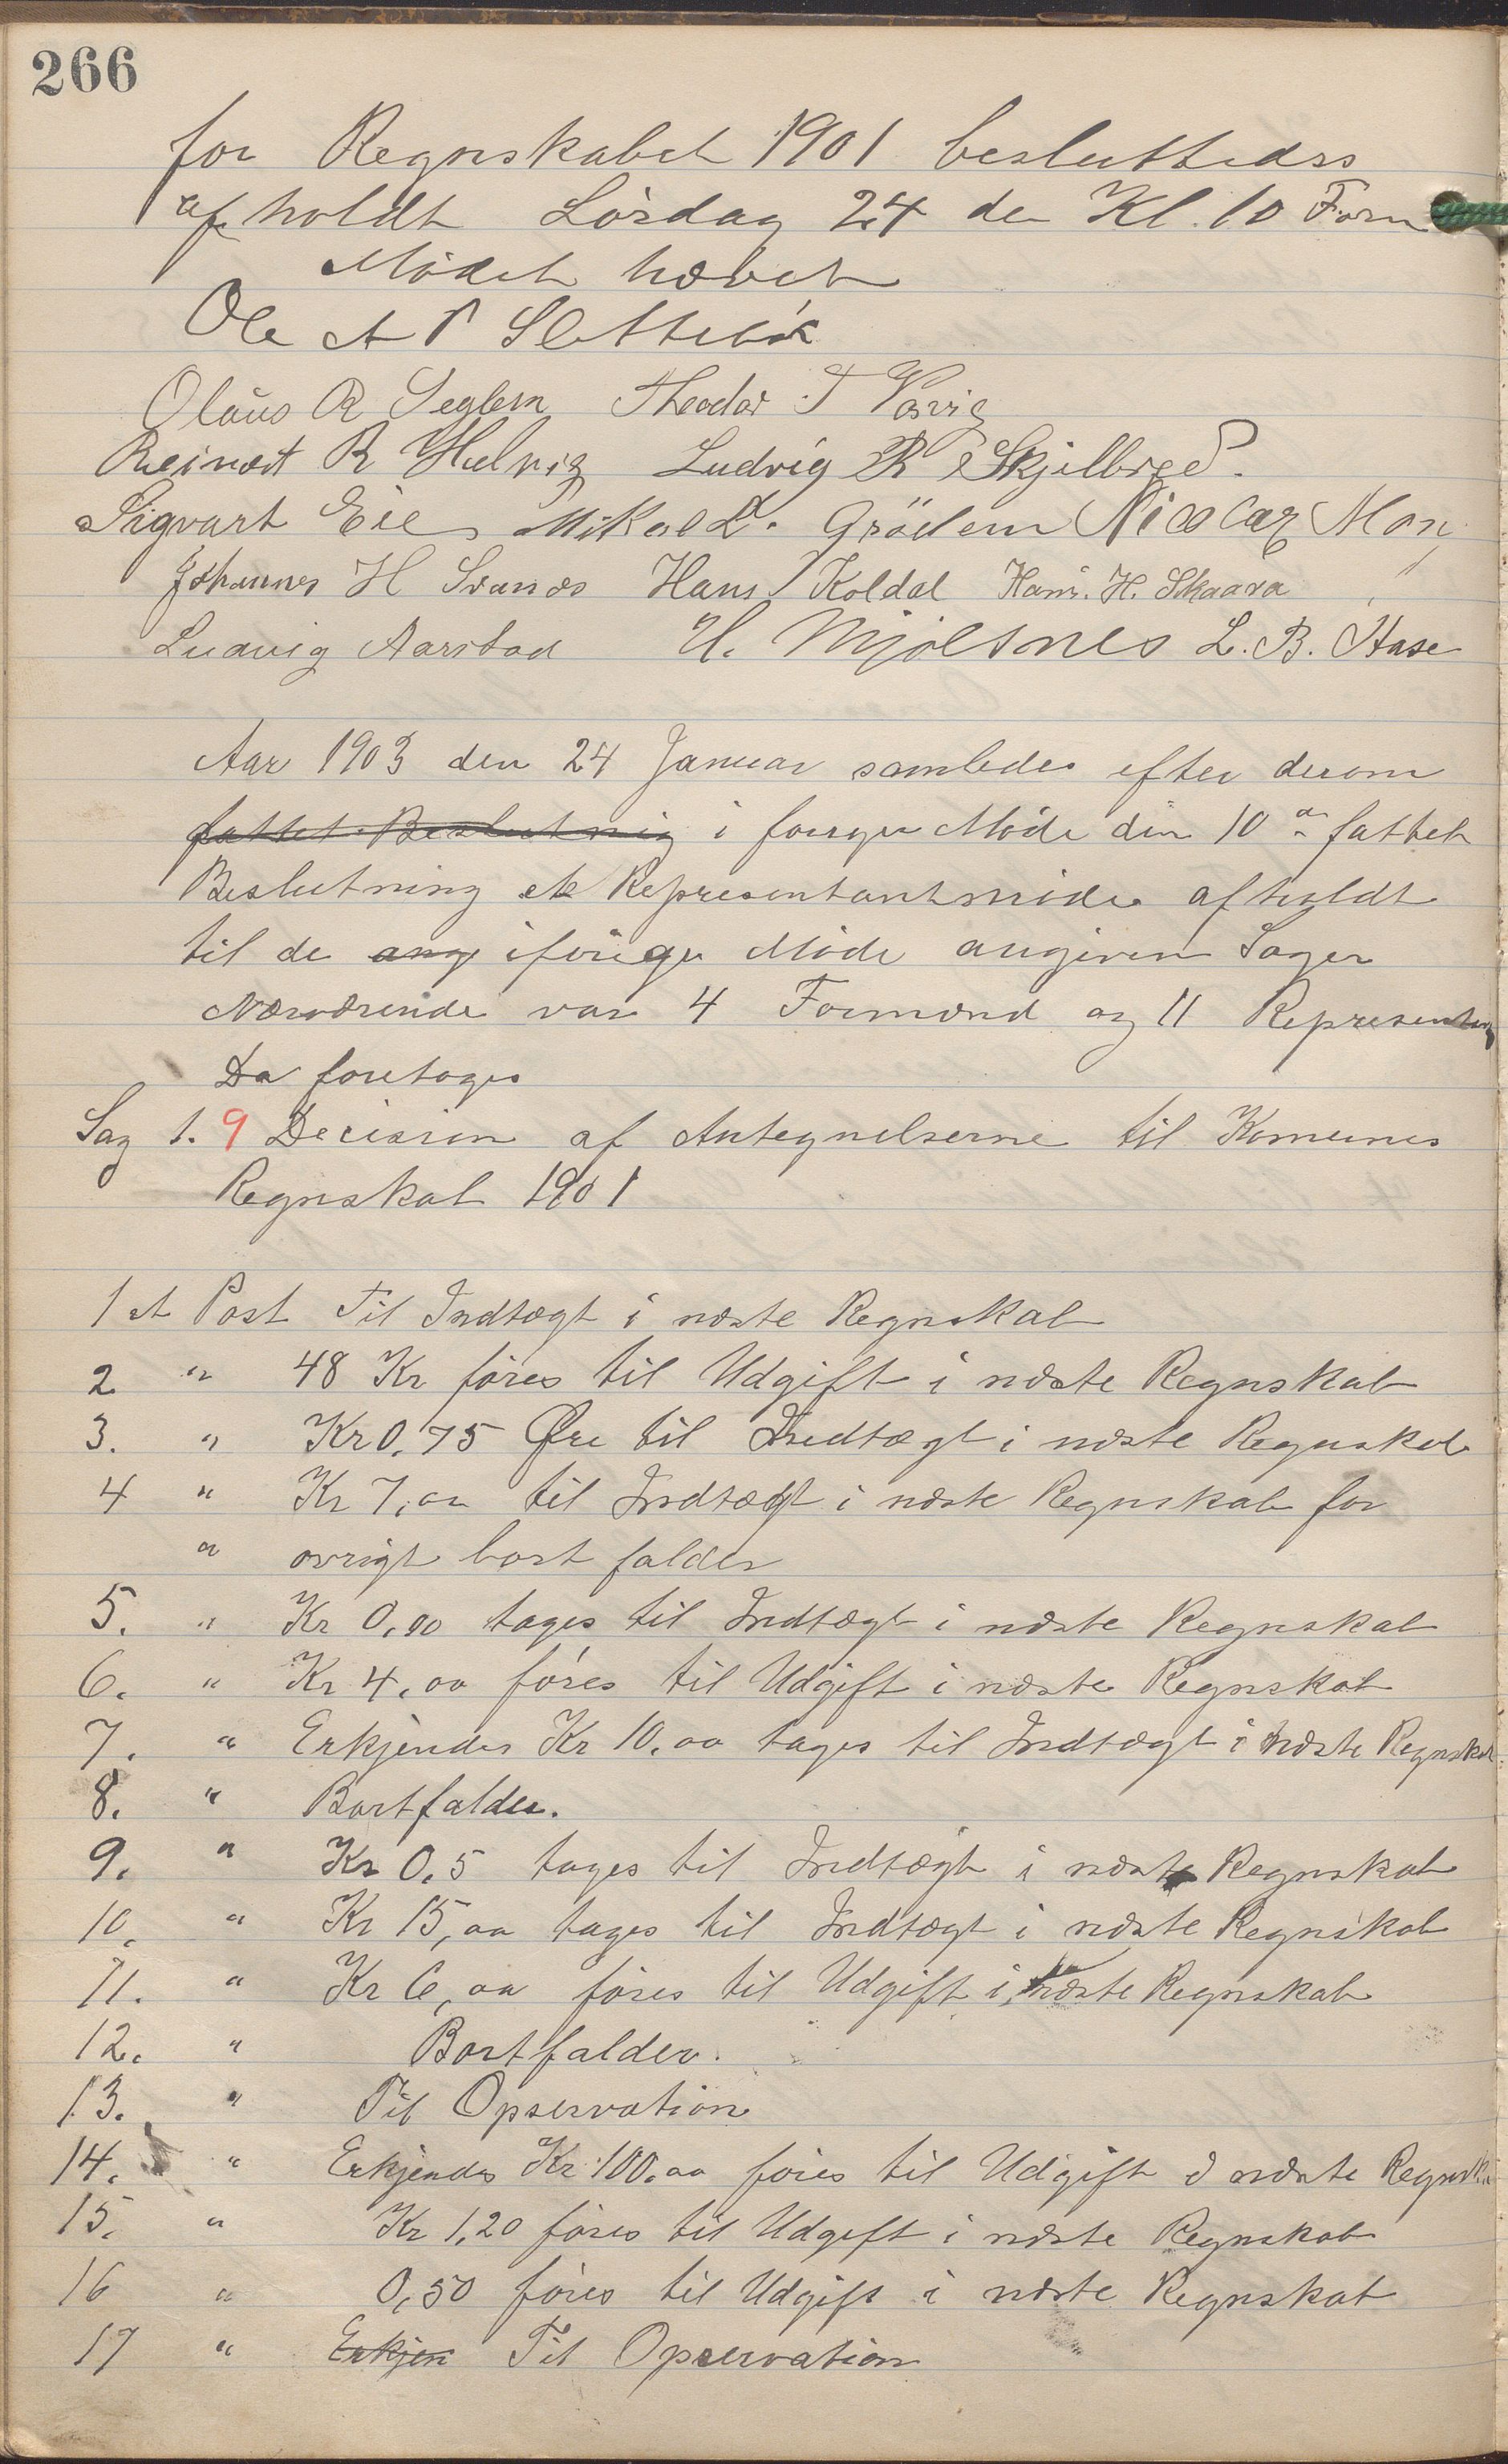 266
for Regnskabet 1901 besluttedss
afholdt Lørdag 24 de Kl. 10 Form
Mødet hævet
Ole A P Slettebø
Olaus R Seglem Theodor T
Reinert R Helvig Ludvig R Skjelbred.
Sigvart Eie Mikal L. Grødem Nicolay Mon
Johannes H Svanæs Hans Koldal Hans. H. Skaara
Ludvig Aarstad H. Mjølsnes L. B. Aase
Aar 1903 den 24 Januar samledes efter derom
fattet Beslutning i forige Møde den 10 de fattet
Beslutning et Representantmøde afholdt
til de ang iforige Møde angiven Sager
Nærværende var 4 Formænd og 11 Representan
Da foretoges
Sag 1. 9 Decision af Antegnelserne til Komunes
Regnskab 1901
1 st Post Til Indtægt i næste Regnskab
2 " 48 Kr føres til Udgift i næste Regnskab
3. " Kr 0,75 Øre til Indtægt i næste Regnskab
4 " Kr 7,00 til Indtægt i næste Regnskab for
" ovrigt bort falder
5. " Kr 0,90 tages til Indtægt i næste Regnskab
6. " Kr 4,00 føres til Udgift i næste Regnskab
7. " Erkjendes Kr 10,00 tages til Indtægt i næste Regnskab
8. " Bortfalder.
9. " Kr 0,5 tages til Indtægt i næste Regnskab
10. " Kr 15,00 tages til Indtægt i næste Regnskab
11. " Kr 6,00 føres til Udgift i næste Regnskab
12. " Bortfalder.
13. " Til Opservation
14. " Erkjendes Kr 100,00 føres til Udgift i næste Regnska
15. " Kr 1,20 føres til Udgift i næste Regnskab
16 " 0,50 føres til Udgift i næste Regnskab
17 " Erkjen Til Opservation